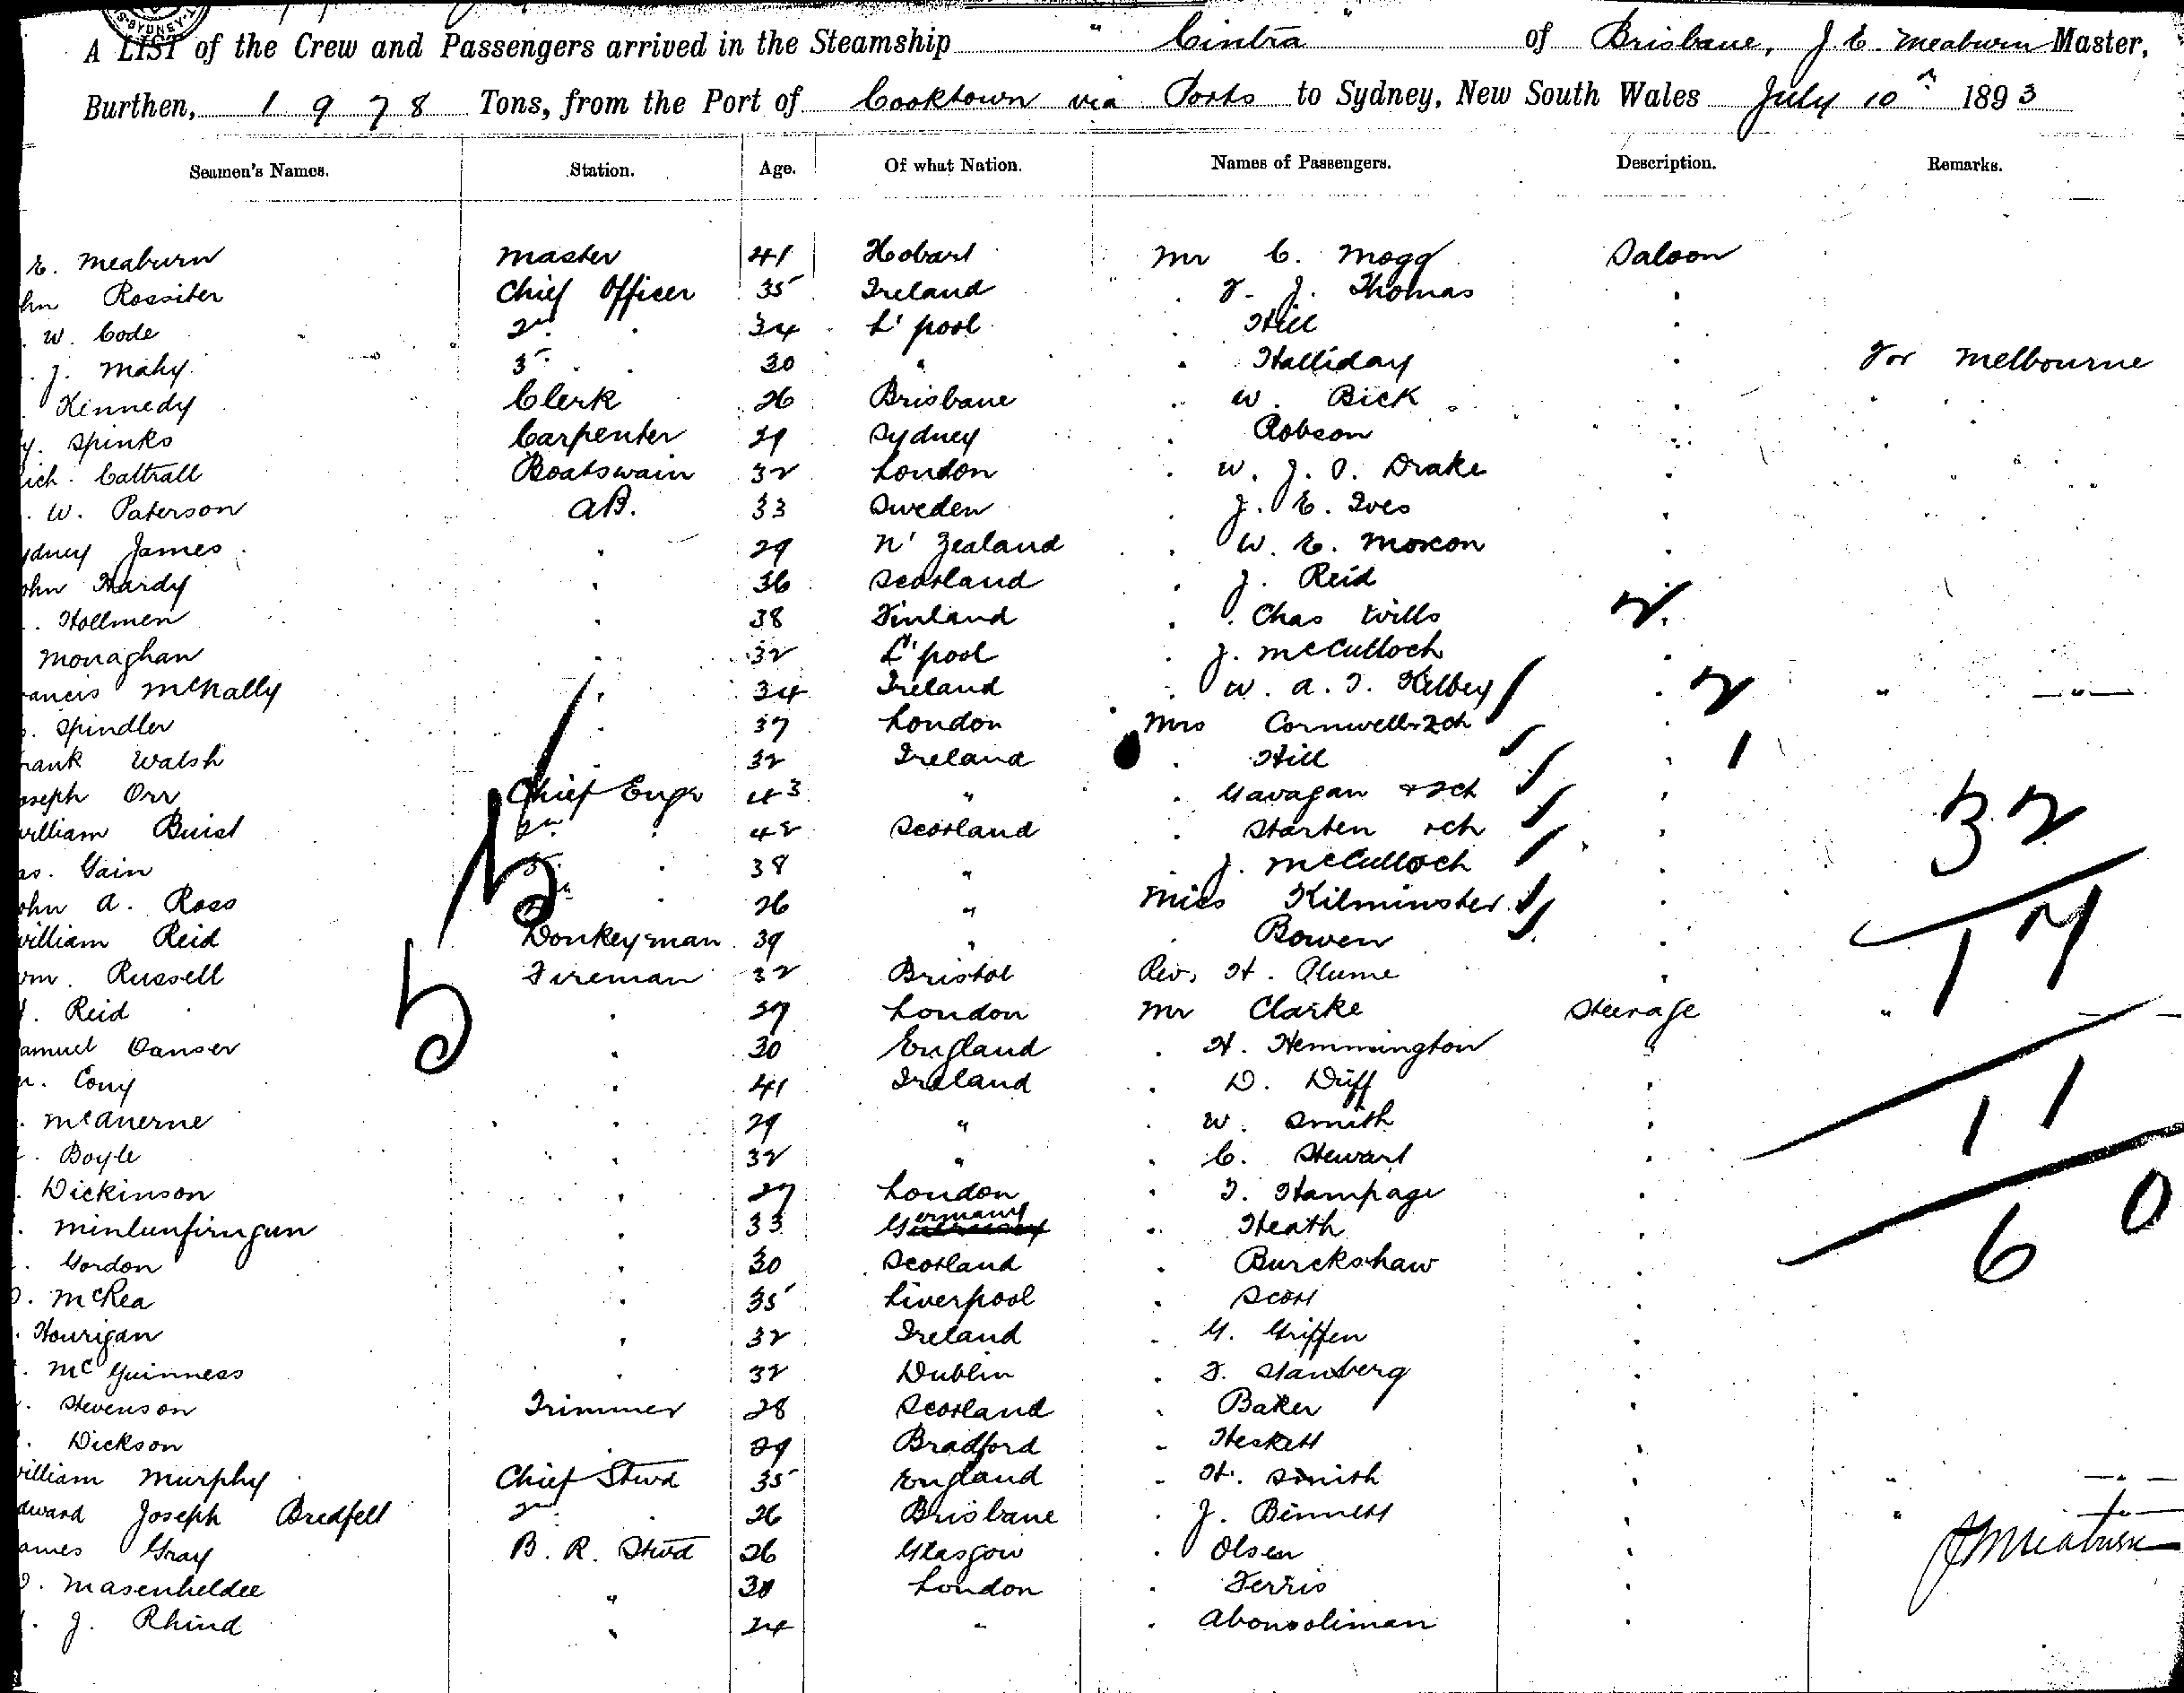 SYDNEY
A LIST of the Crew and Passengers arrived in the Steamship " Cintra " of Brisbane, J. E. Meaburn Master,
Burthen, 1978 Tons, from the Port of Cooktown via Ports to Sydney, New South Wales July 10th 1893
Seamen's Names. Station. Age. Of what Nation. Names of Passengers. Description. Remarks.
E. Meaburn Master 41 Hobart Mr C. Mogg Saloon
hn Rossiter Chief Officer 35 Ireland " F. J. Thomas "
. W. Code 2nd " 34 L'pool " Hill "
. J. Mahy 3rd " 30 " " Halliday " For Melbourne
Kennedy Clerk 26 Brisbane " W. Bick " " "
y. Spinks Carpenter 29 Sydney " Robson " " "
ich. Cattrall Boatswain 32 London " W. J. O. Drake " " "
. W. Paterson A.B. 33 Sweden " J. E. Ives " " "
ydney James " 29 N' Zealand " W. E. Moxon "
ohn Hardy " 36 Scotland " J. Reid "
. Hollmen " 38 Finland " Chas Wills "
Monaghan " 32 L'pool " J. McCulloch "
rancis McNally " 34 Ireland " W. A. T. Kelbey " 2 " — " —
. Spindler " 37 London Mrs Cornwell & 2 ch "
rank Walsh " 32 Ireland " Hill " 1
oseph Orr Chief Engr 43 " " Gavagan & 2 ch "
William Buist 2nd " 42 Scotland " Starten & ch " 32
as. Gain 3rd " 38 " " J. McCulloch "
ohn A. Ross " 26 " Miss Kilminster " 17
William Reid Donkeyman 39 " " Bowen "
Wm. Russell Fireman 32 Bristol Rev. H. Plume "
. Reid " 27 London Mr Clarke Steerage " — " —
amuel Danser " 30 England " H. Hemmington "
. Cony " 41 Ireland " D. Duff " 11
. McAnerne " 29 " " W. Smith "
. Boyle " 32 " " C. Stewart "
. Dickinson " 27 London " T. Hampage "
. " 33 Germany " Heath " 60
. Gordon " 30 Scotland " Burckshaw "
. McRea " 35 Liverpool " Scott "
. Hourigan " 32 Ireland " G. Griffen "
. McGuinness " 32 Dublin " F. Stanberg "
. Stevenson Trimmer 28 Scotland " Baker "
. Dickson " 29 Bradford " Heskett "
William Murphy Chief Stwd 35 England " H. Smith " " — " —
dward Joseph Bredfell 2nd " 26 Brisbane " J. Bennett " " — " —
ames Gray B. R. Stwd 26 Glasgow " Olsen "
. Masenheldee " 30 London " Ferris "
. J. Rhind " 24 " " Abonsoliman "
J E Meaburn